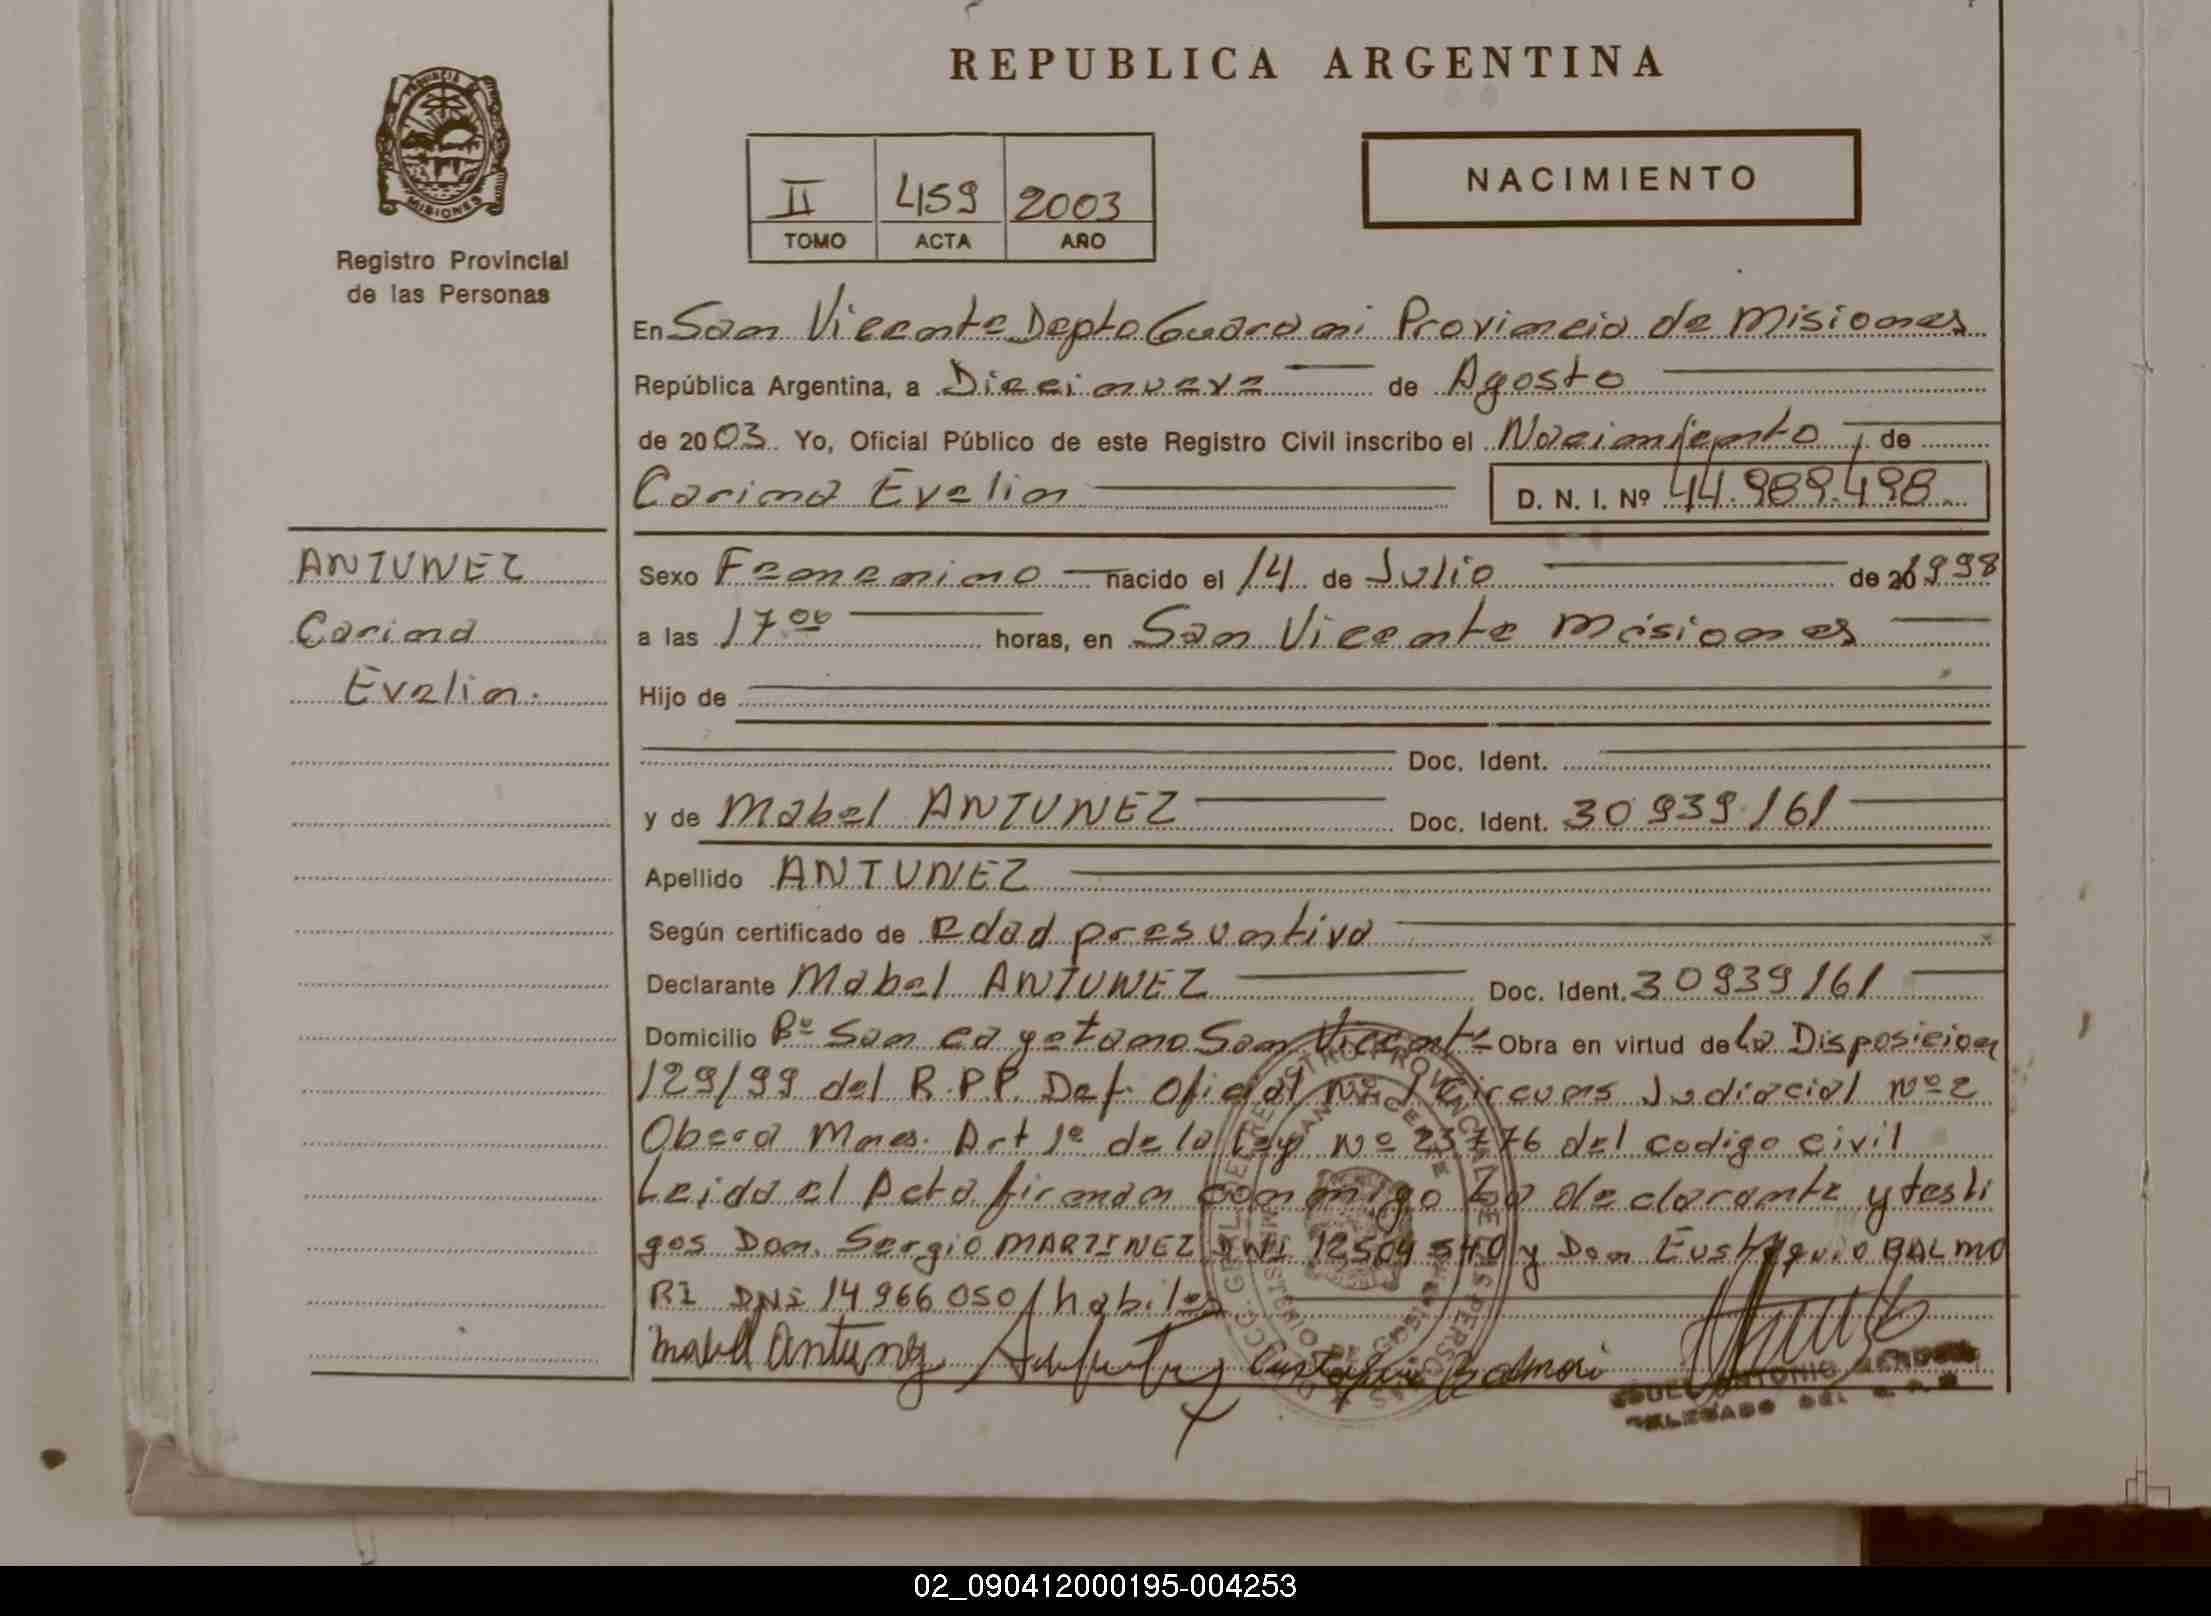 REPUBLICA ARGENTINA
PROVINCIA DE
MISIONES
Registro Provincial
de las Personas
II 459 2003
TOMO ACTA AÑO
NACIMIENTO
En San Vicente Depto Guarani Provincia de Misiones
República Argentina, a Diecinueve de Agosto
de 2003. Yo, Oficial Público de este Registro Civil inscribo el Nacimiento de
Carina Evelin D. N. I. Nº 44.989.498
ANTUNEZ
Carina
Evelin.
Sexo Femenino nacido el 14 de Julio de 1998
a las 17 00 horas, en San Vicente Misiones
Hijo de
Doc. Ident.
y de Mabel ANTUNEZ Doc. Ident. 30939161
Apellido ANTUNEZ
Según certificado de edad presuntiva
Declarante Mabel ANTUNEZ Doc. Ident. 30939161
Domicilio Bº San cayetano San Vicente Obra en virtud de la Disposicion
129/99 del R.P.P. Def. Oficial Nº 1 Circuns Judiacial Nº 2
Obera Mnes. Art 1º de la Ley Nº 23776 del codigo civil
Leida el Acta firman conmigo La declarante y testi
gos Don. Sergio MARTINEZ DNI 12504540 y Don Eustaquio BALMO
RI DNI 14966050/habiles
Mabel Antunez Eustaquio Balmori
ANTONIO
DELEGADO DEL
02_090412000195-004253